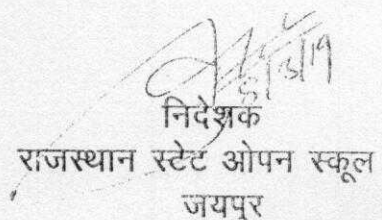 निदेशक
राजस्थान स्टेट ओपन स्कूल
जयपुर